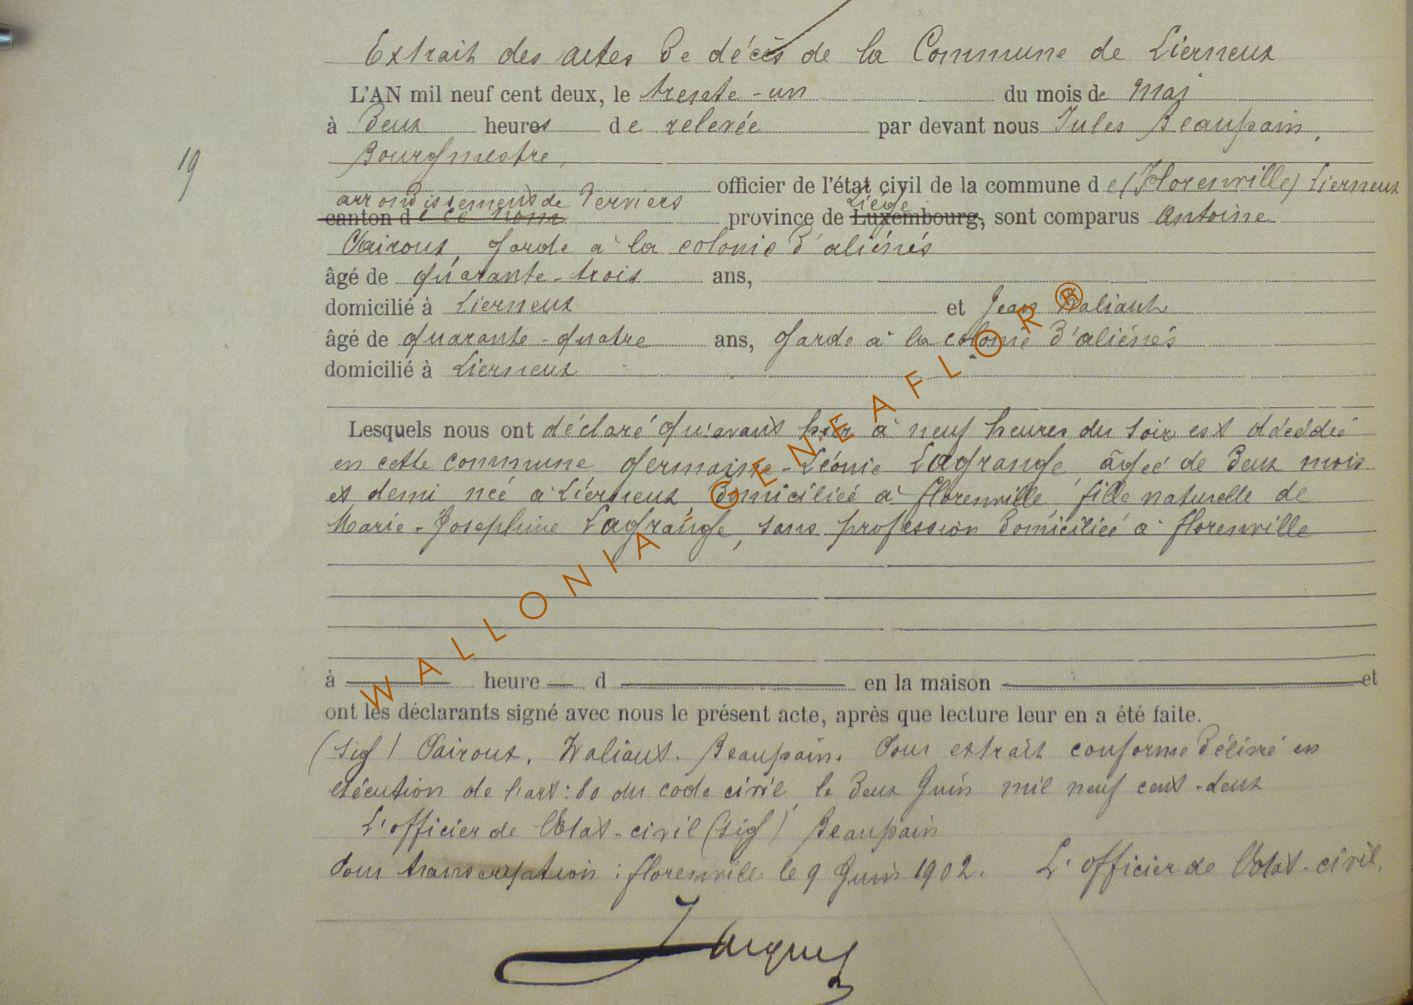 Extrait des actes de décès de la Commune de Lierneux
L'AN mil neuf cent deux, le trente-un du mois de Mai
à deux heures de relevée par devant nous Jules Beaupain,
19
Bourgmestre,
officier de l'état civil de la commune de (Florenville) Lierneux
arrondissement de Verviers Liége
canton de ce nom province de Luxembourg, sont comparus Antoine
garde à la colonie d'aliénés
âgé de quarante-trois ans,
domicilié à Lierneux et Jean Waliaux
âgé de quarante-quatre ans, garde à la colonie d'aliénés
domicilié à Lierneux
Lesquels nous ont déclaré qu'avant hier à neuf heures du soir est décédée
en cette commune Germaine-Léonie Lagrange, âgée de deux mois
et demi née à Lierneux, domiciliée à Florenville, fille naturelle de
Marie-Joséphine Lagrange, sans profession domiciliée à Florenville
à heure d en la maison et
ont les déclarants signé avec nous le présent acte, après que lecture leur en a été faite.
(sig) Waliaux. Beaupain. Pour extrait conforme délivré en
exécution de l'art: 80 du code civil, le deux Juin mil neuf cent-deux
L'officier de l'Etat-civil (sig) Beaupain
Pour transcription : Florenville le 9 Juin 1902. L'officier de l'Etat-civil,
Jacques
WALLONIA - GENEAFLOR ®